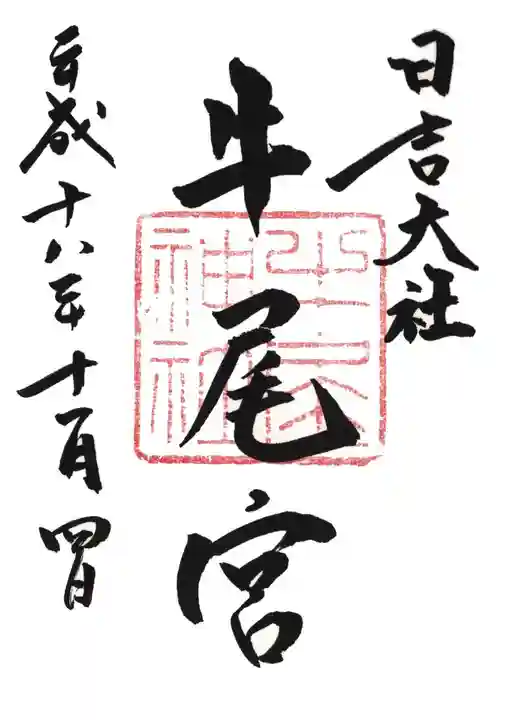 日吉大社
牛尾宮
平成十八年十一月四日